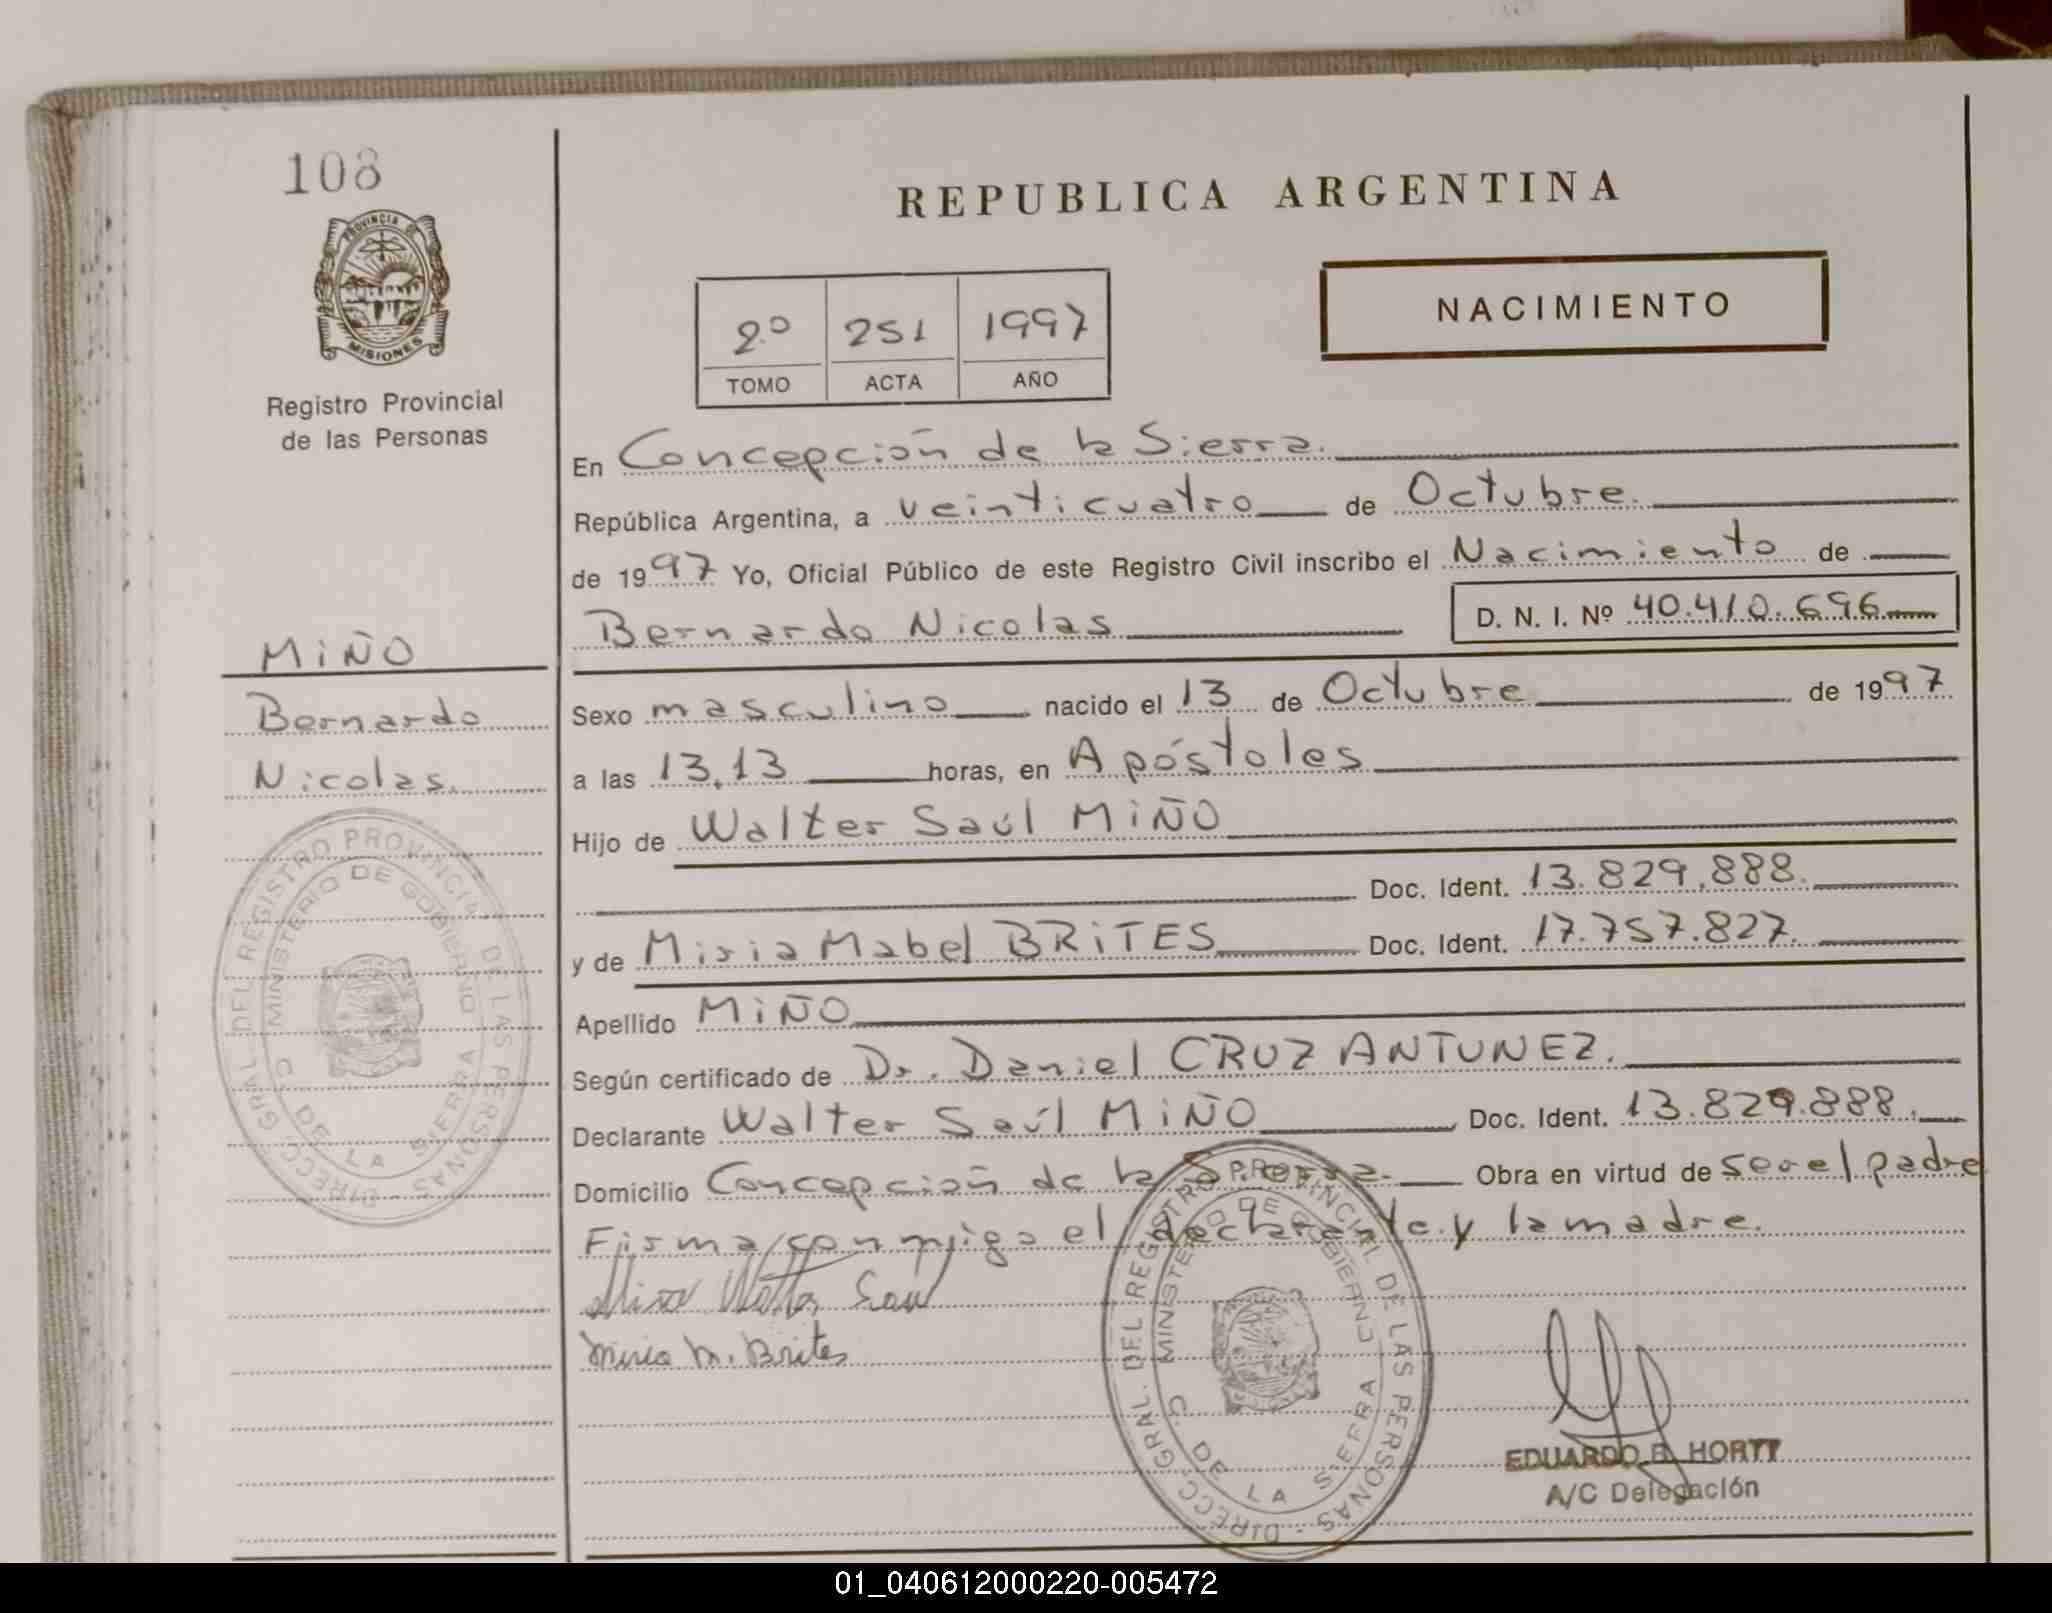 108
PROVINCIA DE
MISIONES
Registro Provincial
de las Personas
REPUBLICA ARGENTINA
2º 251 1997
TOMO ACTA AÑO
NACIMIENTO
En Concepción de la Sierra.
República Argentina, a veinticuatro de Octubre.
de 1997 Yo, Oficial Público de este Registro Civil inscribo el Nacimiento de
Bernardo Nicolas D. N. I. Nº 40.410.696
MIÑO
Bernardo
Nicolas.
Sexo masculino nacido el 13 de Octubre de 1997
a las 13,13 horas, en Apóstoles
Hijo de Walter Saúl MIÑO
Doc. Ident. 13.829.888.
y de Miria Mabel BRITES Doc. Ident. 17.757.827.
Apellido MIÑO
Según certificado de Dr. Daniel CRUZ ANTUNEZ.
Declarante Walter Saúl MIÑO Doc. Ident. 13.829.888.
Domicilio Concepción de la Sierra. Obra en virtud de ser el padre
Firma conmigo el declarante y la madre.
Miño Walter Saul
Miria M. Brites
DIRECC. GRAL. DEL REGISTRO PROVINCIAL DE LAS PERSONAS
MINISTERIO DE GOBIERNO
C. DE LA SIERRA
DIRECC. GRAL. DEL REGISTRO PROVINCIAL DE LAS PERSONAS
MINISTERIO DE GOBIERNO
C. DE LA SIERRA
EDUARDO R. HORTT
A/C Delegación
01_040612000220-005472